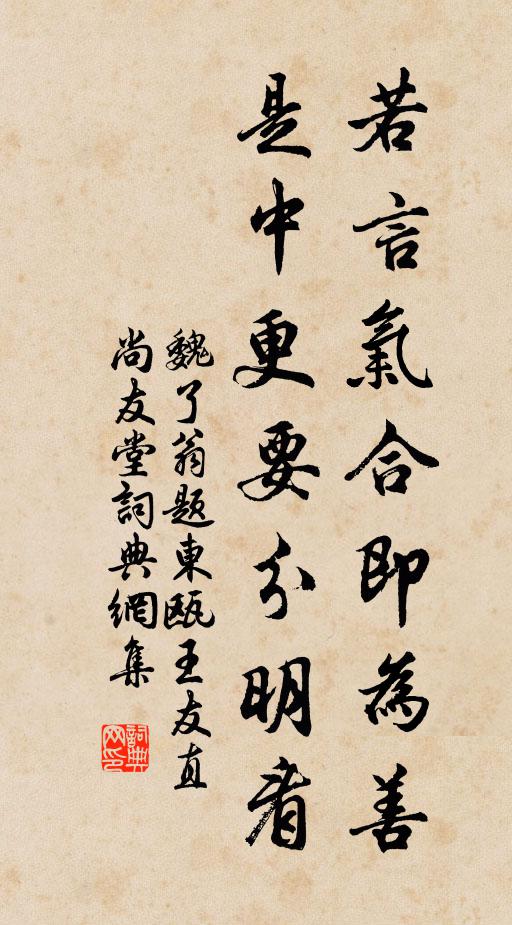 若言氣合即為善
是中更要分明看
魏了翁题東甌王友直
尚友堂詞典網集
詞典网印